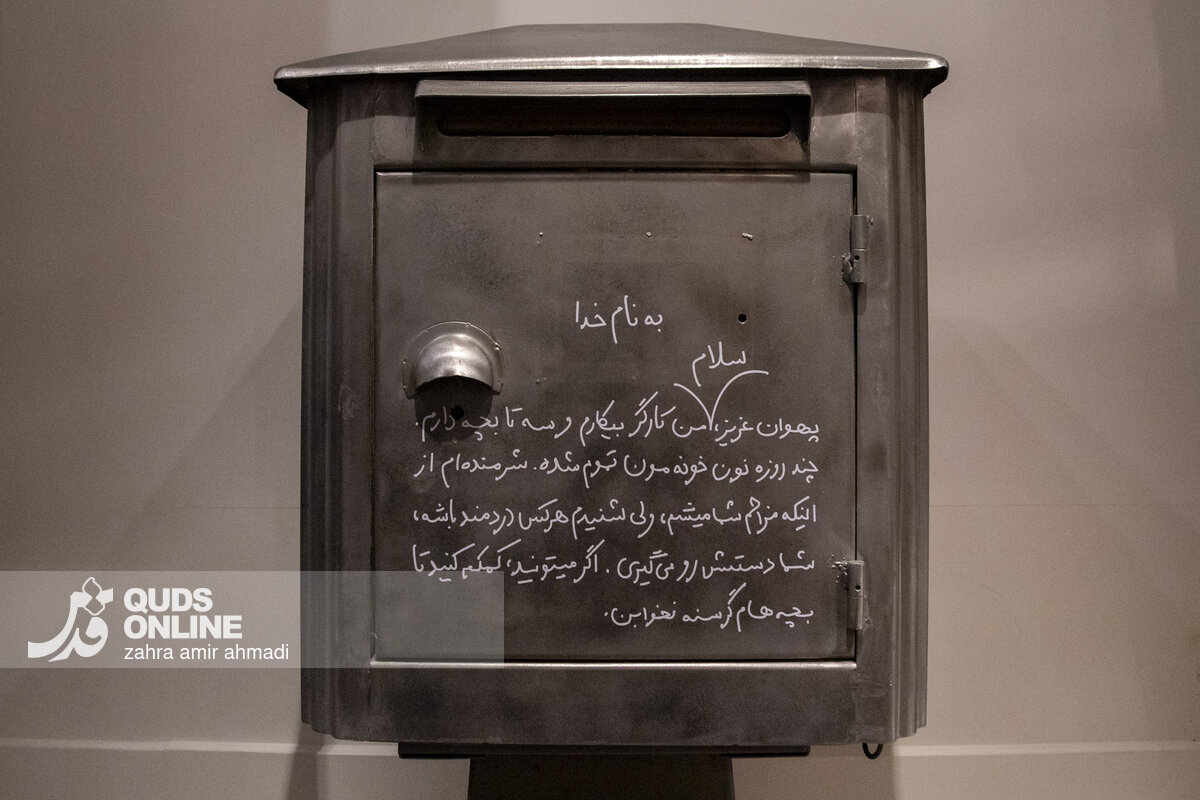 به نام خدا
سلام
پهلوان عزیز، من کارگر بیکارم و سه تا بچه دارم.
چند روزه نون خونه مون تموم شده. شرمنده‌ام از
اینکه مزاحم شما میشم، ولی شنیدم هرکس دردمند باشه،
شما دستش رو می‌گیری. اگر میتونید، کمکم کنید تا
بچه هام گرسنه نخوابن.
قدس
QUDS
ONLINE
zahra amir ahmadi